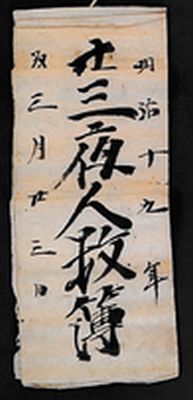 明治十九年
廿三夜人数簿
戌三月廿三日